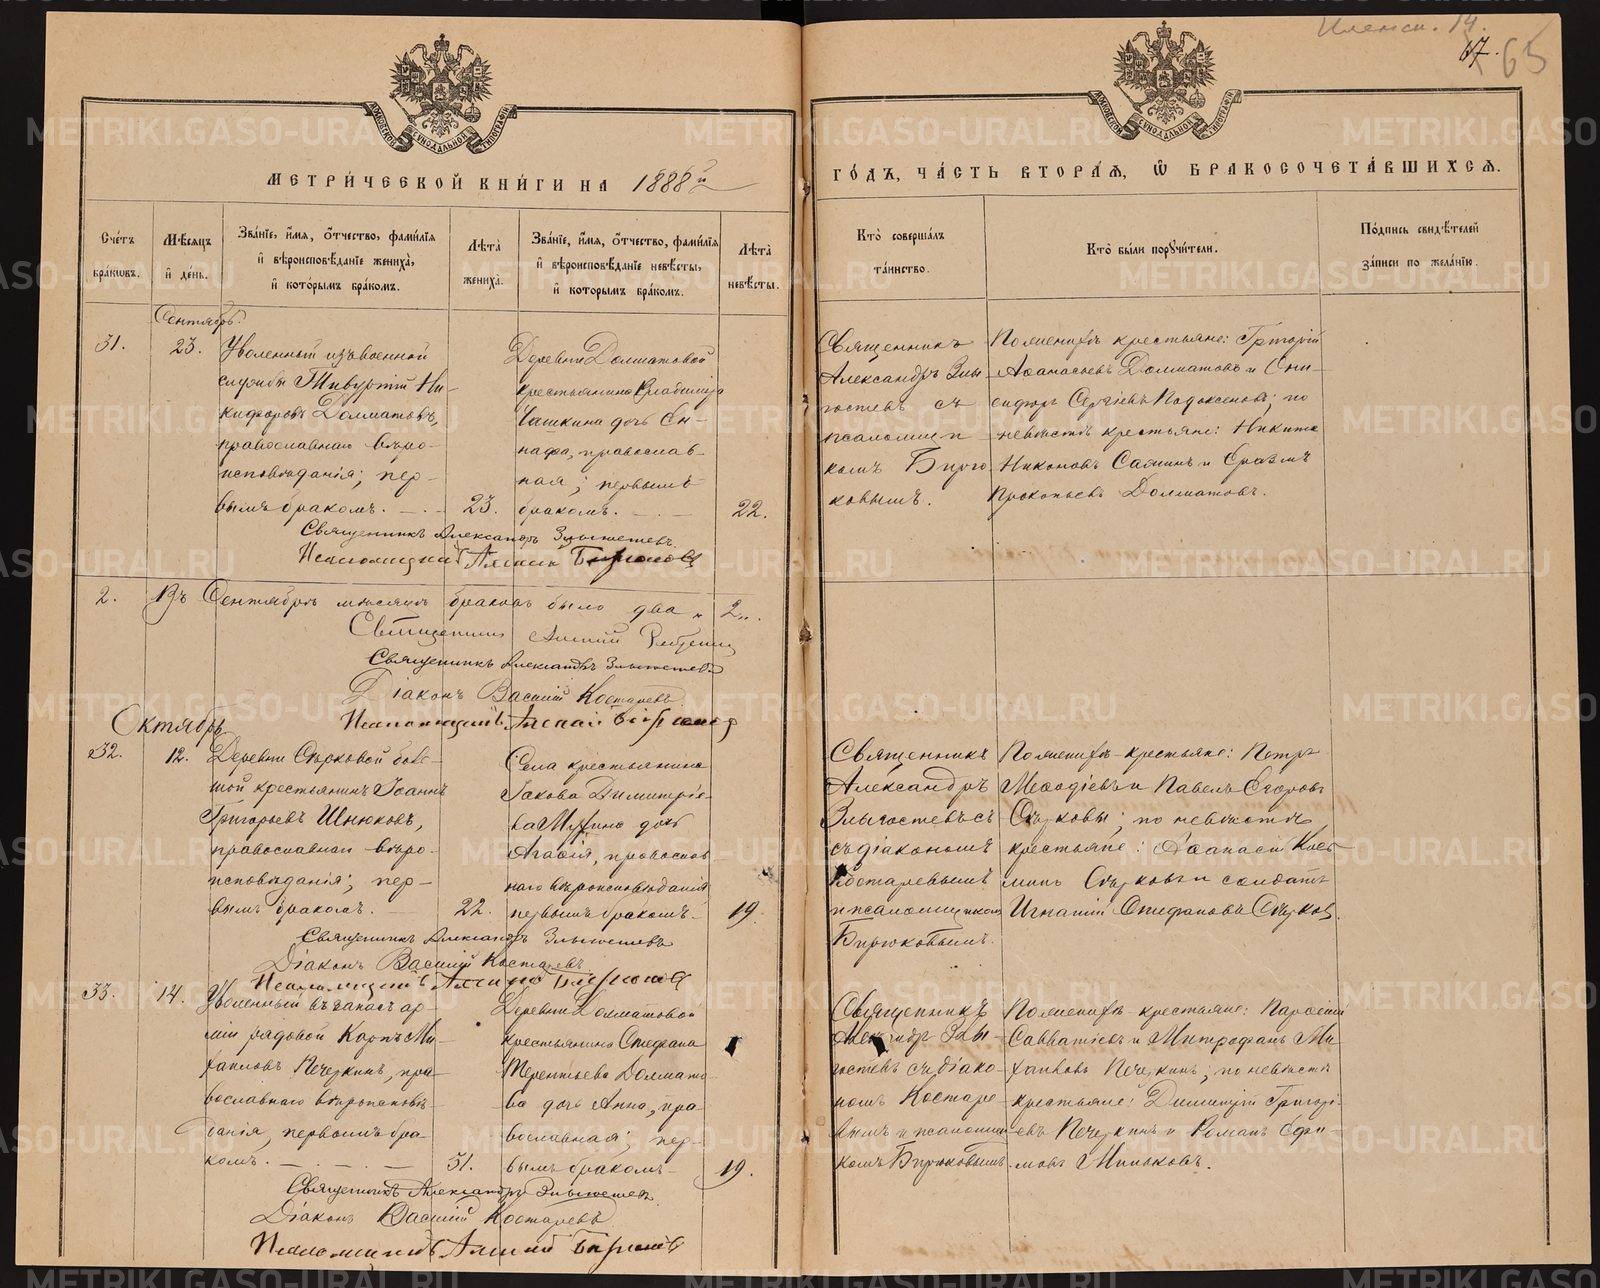 Иленск. 14.
67. 65
МЕТРИ́ЧЕСКОЙ КНИ́ГИ НА 1888й
ГО́ДЪ, ЧА́СТЬ ВТОРА́Я, Ѿ БРАКОСОЧЕТА́ВШИХСЯ.
Сче́тъ бра́ковъ.
Мѣ́сяцъ и҆ де́нь.
Зва́нїе, и҆́мя, ѻ҆́тчество, фами́лїя и҆ вѣроисповѣ́данїе жениха̀, и҆ кото́рымъ бра́комъ.
Лѣ́та жениха̀.
Зва́нїе, и҆́мя, ѻ҆́тчество, фами́лїя и҆ вѣроисповѣ́данїе невѣ́сты, и҆ кото́рымъ бра́комъ.
Лѣ́та невѣ́сты.
Кто̀ соверша́лъ та́инство.
Кто̀ бы́ли поручи́тели.
По́дпись свидѣ́телей за́писи по жела́нїю.
Сентябрь.
31.
23.
Уволенный изъ военной
службы Тивуртій Ни-
кифоровъ Долматовъ,
православнаго вѣро-
исповѣданія; пер-
вымъ бракомъ.
23.
Деревни Долматовой
крестьянина Владиміра
Чашкина дочь
православ-
ная; первымъ
бракомъ.
22.
Священникъ
Александръ Злы-
гостевъ съ
псаломщи-
комъ Бирю-
ковымъ.
По женихѣ крестьяне: Григорій
Аѳанасьевъ Долматовъ и Они-
сифоръ Сергіевъ Подоксеновъ; по
невѣстѣ крестьяне: Никита
Никоновъ и Еразмъ
Прокопьевъ Долматовъ.
Священникъ Александръ Злыгостевъ
Псаломщикъ Алексій Бирюковъ
2. Въ Сентябрѣ мѣсяцѣ браковъ было два „ 2„.
Священникъ
Священникъ Александръ Злыгостевъ
Діаконъ Василій Костаревъ
Псаломщикъ Алексій Бирюковъ
Октябрь
32.
12.
Деревни Сѣрковой боль-
шой крестьянинъ Іоаннъ
Григорьевъ Шнюковъ,
православнаго вѣро-
исповѣданія; пер-
вымъ бракомъ.
22.
Села крестьянина
Іакова Димитріе-
ва дочь
Агаѳія, православ-
наго вѣроисповѣданія
первымъ бракомъ.
19.
Священникъ
Александръ
Злыгостевъ съ
съ діакономъ
Костаревымъ
и псаломщикомъ
Бирюковымъ.
По женихѣ крестьяне: Петръ
Меѳодіевъ и Павелъ Егоровъ
Сѣрковы; по невѣстѣ
крестьяне: Аѳанасій Кось-
минъ Сѣрковъ и солдатъ
Игнатій Стефановъ Сѣрковъ.
Священникъ Александръ Злыгостевъ
Діаконъ Василій Костаревъ
Псаломщикъ Алексій Бирюковъ
33.
14.
Уволенный въ запасъ ар-
міи рядовой Карпъ Ми-
хаиловъ Печеркинъ, пра-
вославнаго вѣроисповѣ-
данія, первымъ бра-
комъ.
31.
Деревни Долматовой
крестьянина Стефана
Терентьева Долмато-
ва дочь Анна, пра-
вославная; пер-
вымъ бракомъ
19.
Священникъ
Александръ Злы-
гостевъ съ діако-
номъ Костаре-
вымъ и псаломщи-
комъ Бирюковымъ.
По женихѣ крестьяне: Парѳеній
Савватіевъ и Митрофанъ Ми-
хаиловъ Печеркинъ; по невѣстѣ
крестьяне: Димитрій Григорі-
евъ Печеркинъ и Романъ Ефи-
мовъ Миньковъ.
Священникъ Александръ Злыгостевъ
Діаконъ Василій Костаревъ
Псаломщикъ Алексій Бирюковъ
METRIKI.GASO-URAL.RU